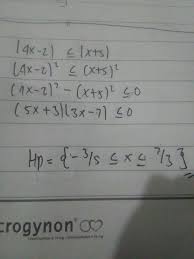 |4x-2| ≤ |x+5|
(4x-2)² ≤ (x+5)²
(4x-2)² - (x+5)² ≤ 0
(5x+3)(3x-7) ≤ 0
Hp = {-3/5 ≤ x ≤ 7/3}
crogynon